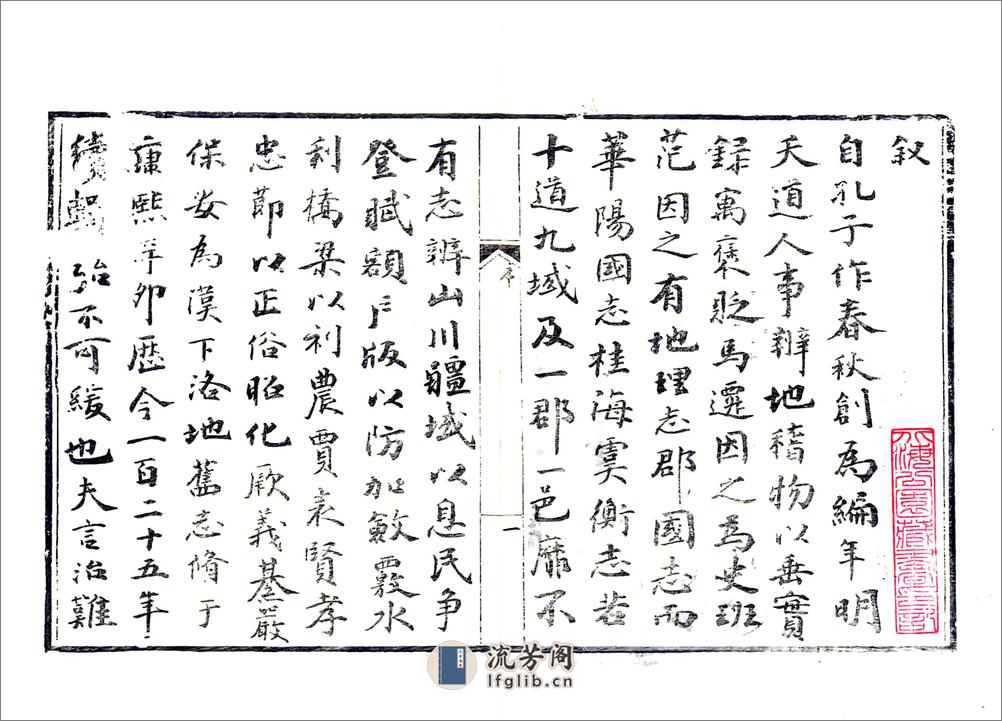 叙
自孔子作春秋創為編年明
天道人事辨地稽物以垂實
録寓褒貶馬遷因之為史班
范因之有地理志郡國志而
華陽國志桂海虞衡志若
十道九域及一郡一邑靡不
序
一
有志辨山川疆域以息民争
登賦額戶版以防加敏覈水
利橋梁以利農賈表賢孝
忠節以正俗昭化厥義綦嚴
保安為漢下洛地舊志脩于
康熙辛卯歷今一百二十五年
續輯殆不可緩也夫言治難
流芳阁
lfglib.cn